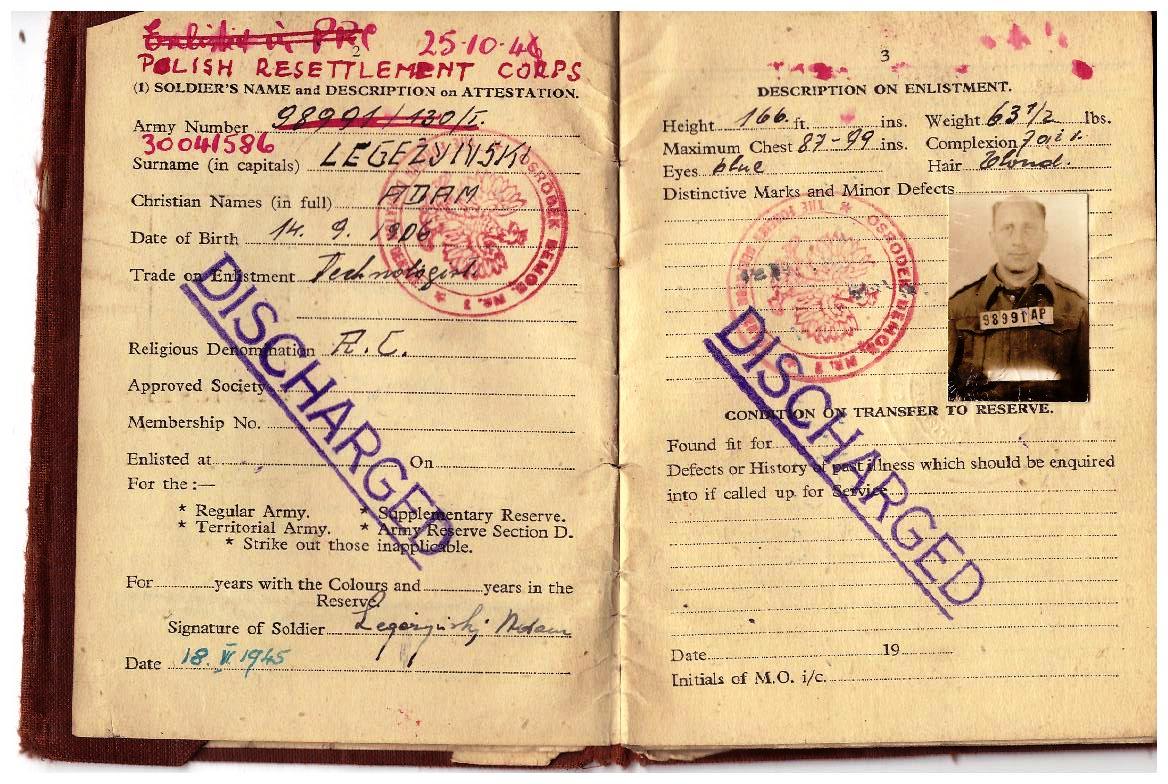 Enlisted in PRC 25-10-46
2
POLISH RESETTLEMENT CORPS
(1) SOLDIER'S NAME and DESCRIPTION on ATTESTATION.
Army Number 98991/130/I.
30041586
Surname (in capitals) LEGEŻYŃSKI
Christian Names (in full) ADAM
Date of Birth 14. 9. 1906
Trade on Enlistment Technologist.
Religious Denomination R.C.
Approved Society
Membership No.
Enlisted at On
For the :—
* Regular Army. * Supplementary Reserve.
* Territorial Army. * Army Reserve Section D.
* Strike out those inapplicable.
For years with the Colours and years in the
Reserve.
Signature of Soldier Legeżyński Adam
Date 18. VI. 1945
DISCHARGED
OSRODEK DEMOB. NR. 1
3
DESCRIPTION ON ENLISTMENT.
Height 166. ft. ins. Weight 63 1/2 lbs.
Maximum Chest 87-99 ins. Complexion fair.
Eyes blue Hair blond.
Distinctive Marks and Minor Defects
98991 AP
OSRODEK DEMOB. NR. 1
CONDITION ON TRANSFER TO RESERVE.
Found fit for
Defects or History of past illness which should be enquired
into if called up for Service
DISCHARGED
Date 19
Initials of M.O. i/c.